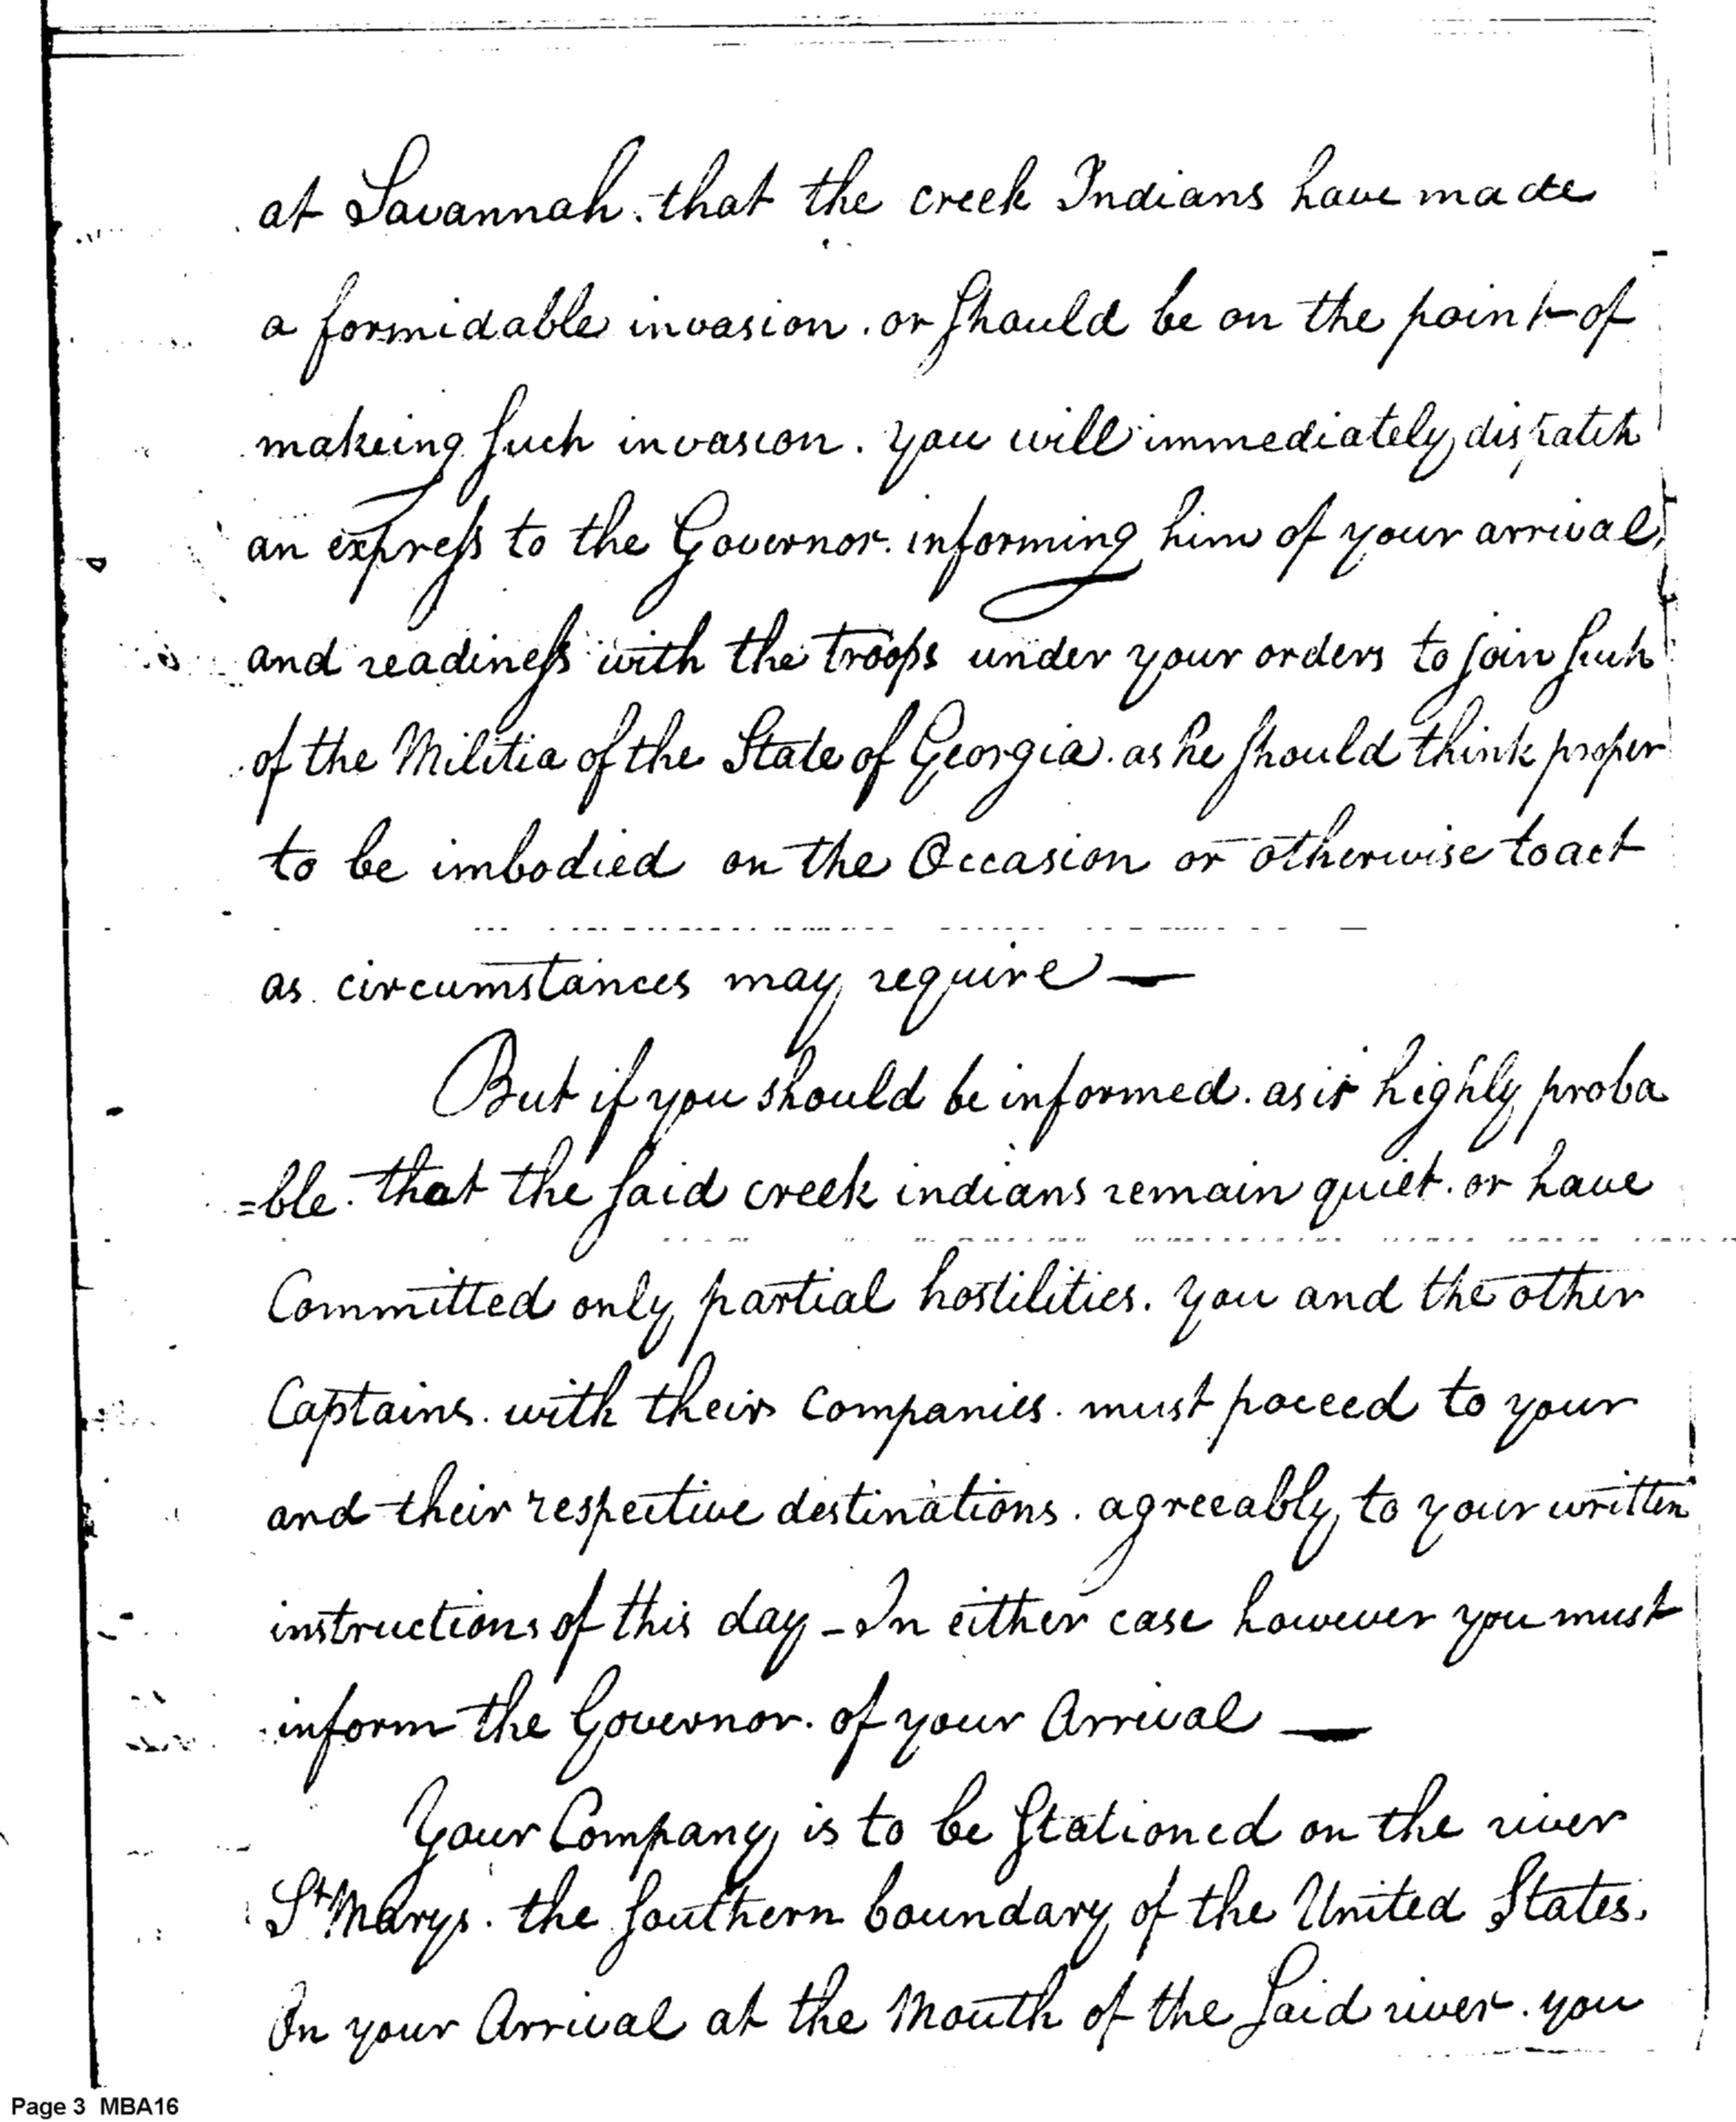 at Savannah. that the creek Indians have made
a formidable invasion. or should be on the point of
makeing such invasion. you will immediately dispatch
an express to the Governor. informing him of your arrival,
and readiness with the troops under your orders to join such
of the Militia of the State of Georgia. as he should think proper
to be imbodied on the Occasion or otherwise to act
as circumstances may require —
But if you should be informed. as is highly proba
=ble. that the said creek indians remain quiet. or have
Committed only partial hostilities. you and the other
Captains. with their Companies. must poceed to your
and their respective destinations. agreeably to your written
instructions of this day – In either case however you must
inform the Governor. of your Arrival —
Your Company is to be stationed on the river
St Marys. the southern boundary of the United States.
On your Arrival at the Mouth of the said river. you
Page 3 MBA16